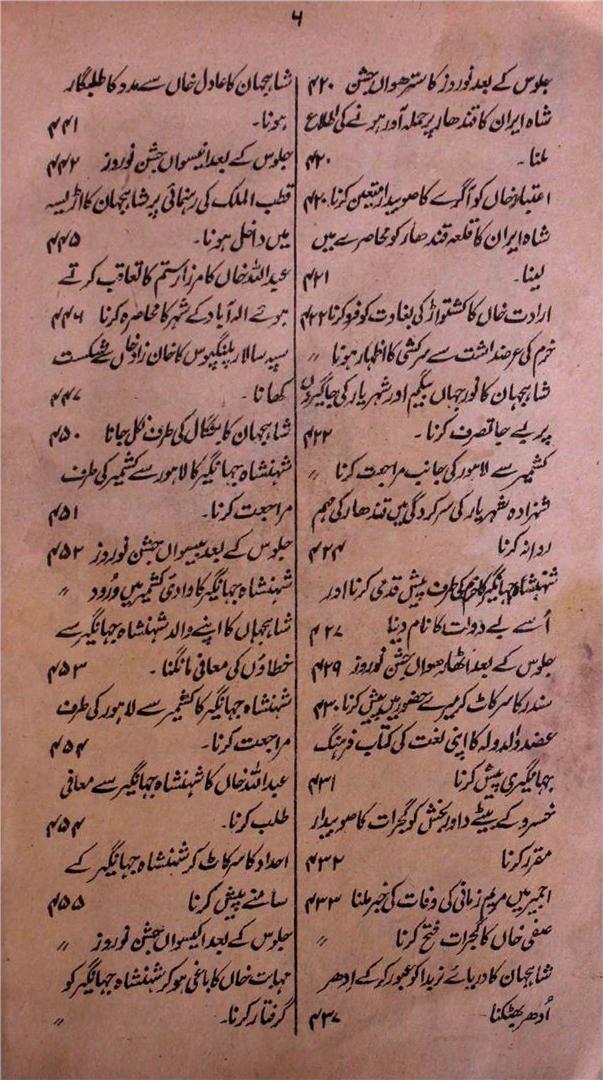 ۶
جلوس کے بعد نوروز کا سترھواں جشن ۴۲۰
شاہ ایران کا قندھار پر حملہ آور ہونے کی اطلاع
ملنا۔ ۴۲۰
اعتبار خاں کو آگرے کا صوبیدار متعین کرنا ۴۲۰
شاہ ایران کا قلعہ قندھار کو محاصرے میں
لینا۔ ۴۲۱
ارادت خاں کا کشتواڑ کی بغاوت کو فرو کرنا ۴۲۲
خرم کی عرضداشت سے سرکشی کا اظہار ہونا 〃
شاہجہان کا نورجہاں بیگم اور شہریار کی جاگیروں
پر بے جا تصرف کرنا۔ ۴۲۲
کشمیر سے لاہور کی جانب مراجعت کرنا 〃
شہزادہ شہریار کی سرکردگی میں قندھار کی مہم
روانہ کرنا ۴۲۴
شہنشاہ جہانگیر کا خرم کی طرف پیش قدمی کرنا اور
اُسے بے دولت کا نام دینا ۴۲۷
جلوس کے بعد اٹھارھواں جشن نوروز ۴۲۹
سندر کا سر کاٹ کر میرے حضور میں پیش کرنا ۴۳۰
عضد الدولہ کا اپنی لغت کی کتاب فرہنگ
جہانگیری پیش کرنا ۴۳۱
خسرو کے بیٹے داور بخش کو گجرات کا صوبیدار
مقرر کرنا ۴۳۲
اجمیر میں مریم زمانی کی وفات کی خبر ملنا ۴۳۳
صفی خاں کا گجرات فتح کرنا 〃
شاہجہان کا دریائے نربدا کو عبور کر کے اِدھر
اُدھر بھٹکنا ۴۳۷
شاہجہان کا عادل خاں سے مدد کا طلبگار
ہونا۔ ۴۴۱
جلوس کے بعد انیسواں جشن نوروز ۴۴۲
قطب الملک کی رہنمائی پر شاہجہان کا اڑیسہ
میں داخل ہونا۔ ۴۴۵
عبداللہ خاں کا مرزا رستم کا تعاقب کرتے
ہوئے الہ آباد کے شہر کا محاصرہ کرنا ۴۴۶
سپہ سالار پلنگپوس کا خان زاد خاں سے شکست
کھانا۔ ۴۴۷
شاہجہان کا بنگال کی طرف نکل جانا ۴۵۰
شہنشاہ جہانگیر کا لاہور سے کشمیر کی طرف
مراجعت کرنا۔ ۴۵۱
جلوس کے بعد بیسواں جشن نوروز ۴۵۲
شہنشاہ جہانگیر کا وادی کشمیر میں ورُود 〃
شاہجہاں کا اپنے والد شہنشاہ جہانگیر سے
خطاؤں کی معافی مانگنا۔ ۴۵۳
شہنشاہ جہانگیر کا کشمیر سے لاہور کی طرف
مراجعت کرنا۔ ۴۵۴
عبداللہ خاں کا شہنشاہ جہانگیر سے معافی
طلب کرنا۔ ۴۵۴
احداد کا سر کاٹ کر شہنشاہ جہانگیر کے
سامنے پیش کرنا ۴۵۵
جلوس کے بعد اکیسواں جشن نوروز 〃
مہابت خاں کا باغی ہو کر شہنشاہ جہانگیر کو
گرفتار کرنا۔ 〃